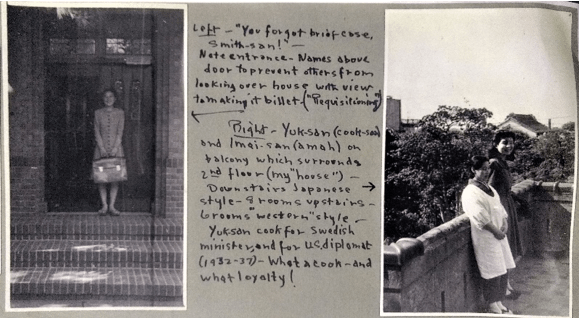 Left - "You forgot briefcase,
Smith-san!" -
Note entrance - Names above
door to prevent others from
looking over house with view
to making it billet. ("Requisitioning")
Right - Yuk-san (cook-san)
and Imai-san (amah) on
balcony which surrounds
2nd floor (my "house") -
Downstairs Japanese
style - 8 rooms upstairs -
6 rooms "western" style -
Yuk-san cook for Swedish
minister, and for U.S. diplomat
(1932-37) - What a cook - and
what loyalty!